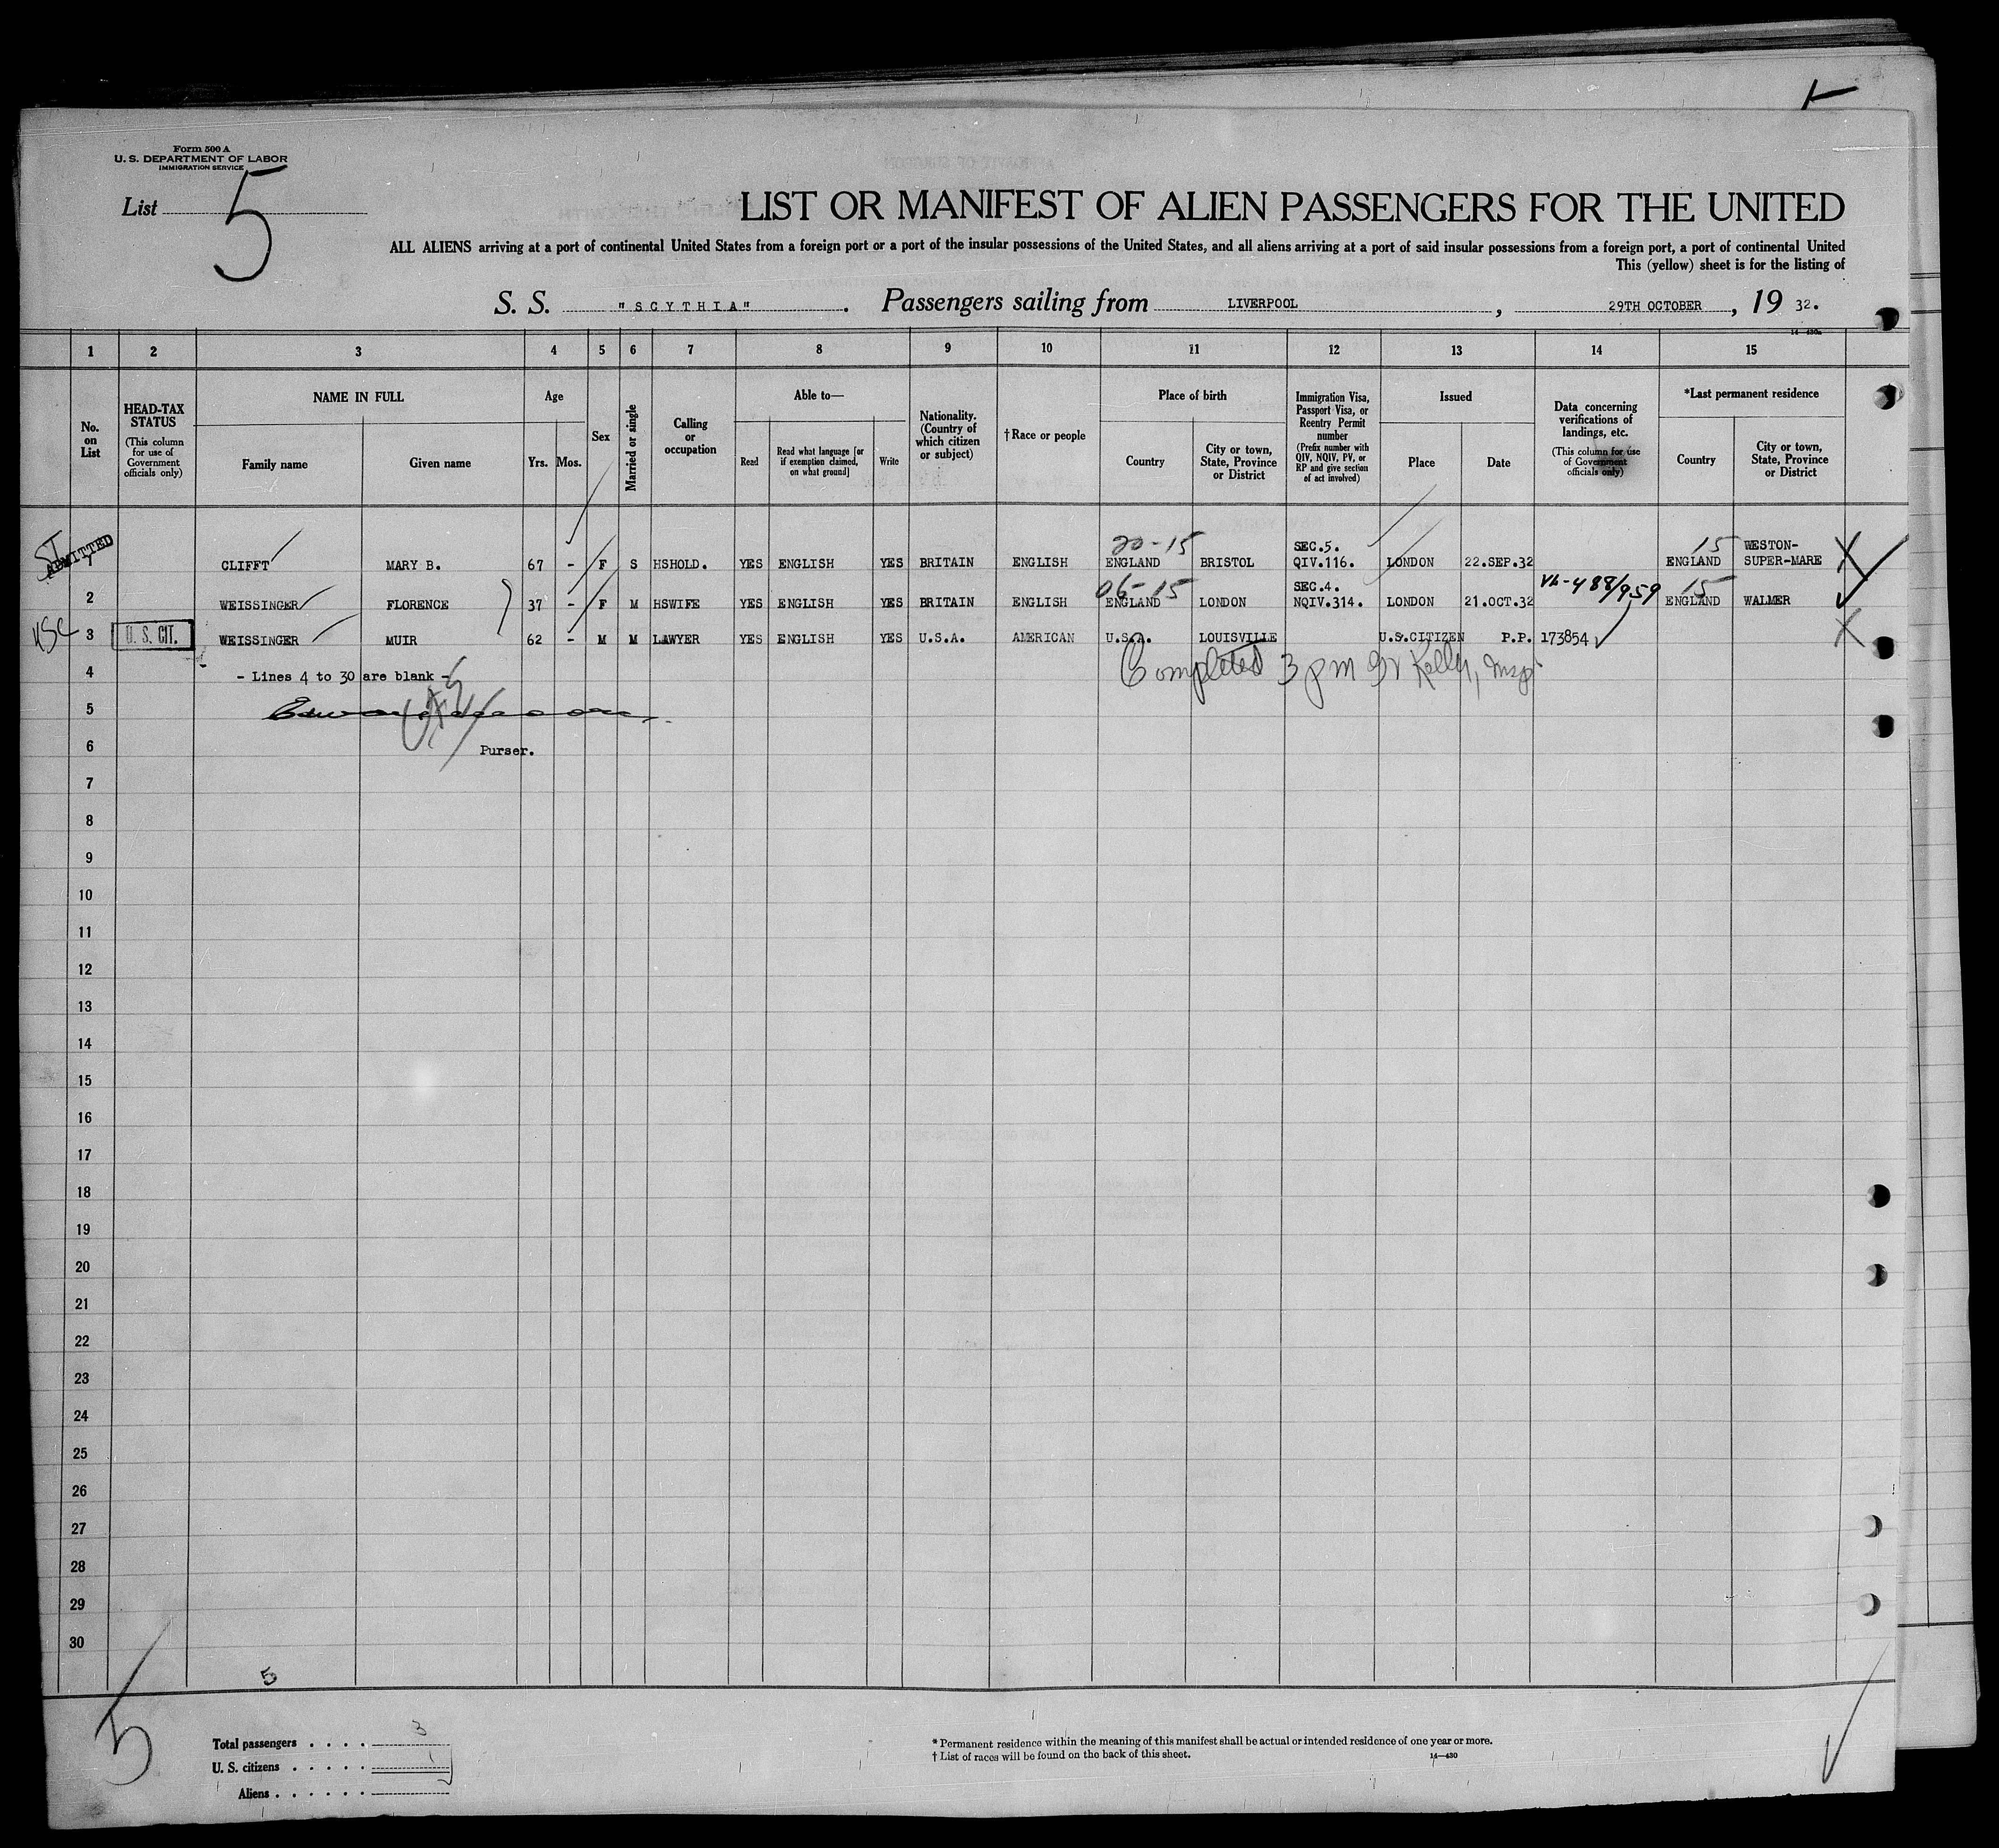 Form 500 A
U. S. DEPARTMENT OF LABOR
IMMIGRATION SERVICE
List 5
LIST OR MANIFEST OF ALIEN PASSENGERS FOR THE UNITED
ALL ALIENS arriving at a port of continental United States from a foreign port or a port of the insular possessions of the United States, and all aliens arriving at a port of said insular possessions from a foreign port, a port of continental United
This (yellow) sheet is for the listing of
S. S. "SCYTHIA". Passengers sailing from LIVERPOOL, 29TH OCTOBER, 19 32.
1 2 3 4 5 6 7 8 9 10 11 12 13 14 15
No. on List
HEAD-TAX STATUS (This column for use of Government officials only)
NAME IN FULL
Family name Given name
Age
Yrs. Mos.
Sex
Married or single
Calling or occupation
Able to—
Read
Read what language [or if exemption claimed, on what ground]
Write
Nationality. (Country of which citizen or subject)
†Race or people
Place of birth
Country
City or town, State, Province or District
Immigration Visa, Passport Visa, or Reentry Permit number (Prefix number with QIV, NQIV, PV, or RP and give section of act involved)
Issued
Place Date
Data concerning verifications of landings, etc. (This column for use of Government officials only)
*Last permanent residence
Country
City or town, State, Province or District
ADMITTED
20-15 SEC.5. 15 WESTON-
1 CLIFFT MARY B. 67 - F S HSHOLD. YES ENGLISH YES BRITAIN ENGLISH ENGLAND BRISTOL QIV.116. LONDON 22.SEP.32 ENGLAND SUPER-MARE
06-15 SEC.4. VL-488/959 15
2 WEISSINGER FLORENCE 37 - F M HSWIFE YES ENGLISH YES BRITAIN ENGLISH ENGLAND LONDON NQIV.314. LONDON 21.OCT.32 ENGLAND WALMER
USC 3 U. S. CIT. WEISSINGER MUIR 62 - M M LAWYER YES ENGLISH YES U.S.A. AMERICAN U.S.A. LOUISVILLE U.S.CITIZEN P.P. 173854
4 - Lines 4 to 30 are blank - Completed 3 pm Kelly, Insp
5
6 Purser.
7
8
9
10
11
12
13
14
15
16
17
18
19
20
21
22
23
24
25
26
27
28
29
30
5
5
Total passengers . . . . 3
U. S. citizens . . . . . 1
Aliens . . . . . .
* Permanent residence within the meaning of this manifest shall be actual or intended residence of one year or more.
† List of races will be found on the back of this sheet. 14—430